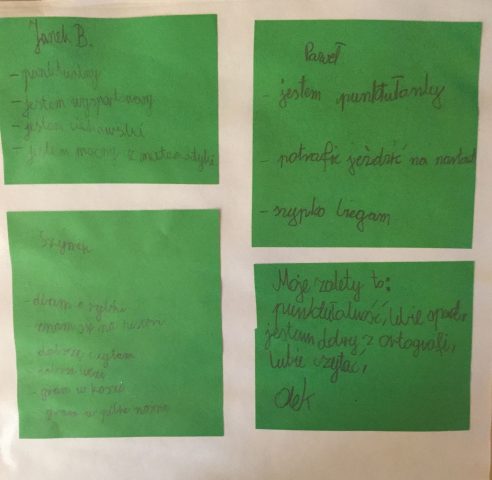 Janek B.
- punktualny
- jestem wysportowany
- jestem ciekawski
- jestem mocny z matematyki
Paweł
- jestem punktułalny
- potrafię jeździć na nartach
- szypko biegam
Szymek
- dbam o rybki
- znam się na
dobrze czytam
- gram w kosza
gram w piłkę nożną
Moje zalety to:
punktułalność, lubię sport,
jestem dobry z ortografi,
lubię czytać,
Olek